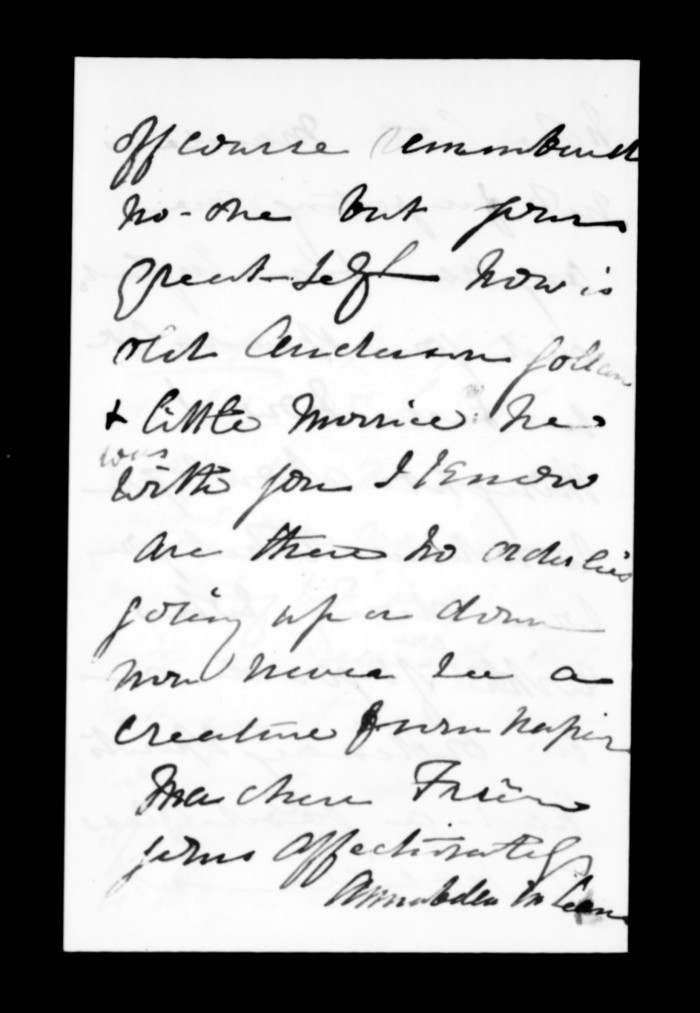 off course remembered
no-one but your
great-self How is
old Anderson Gollan
& little Morrice: he
was
with you I know
are there no orderlies
going up or down
now never see a
creature from Napier
Ma chere Friend
yours affectionately
Annabella McLean